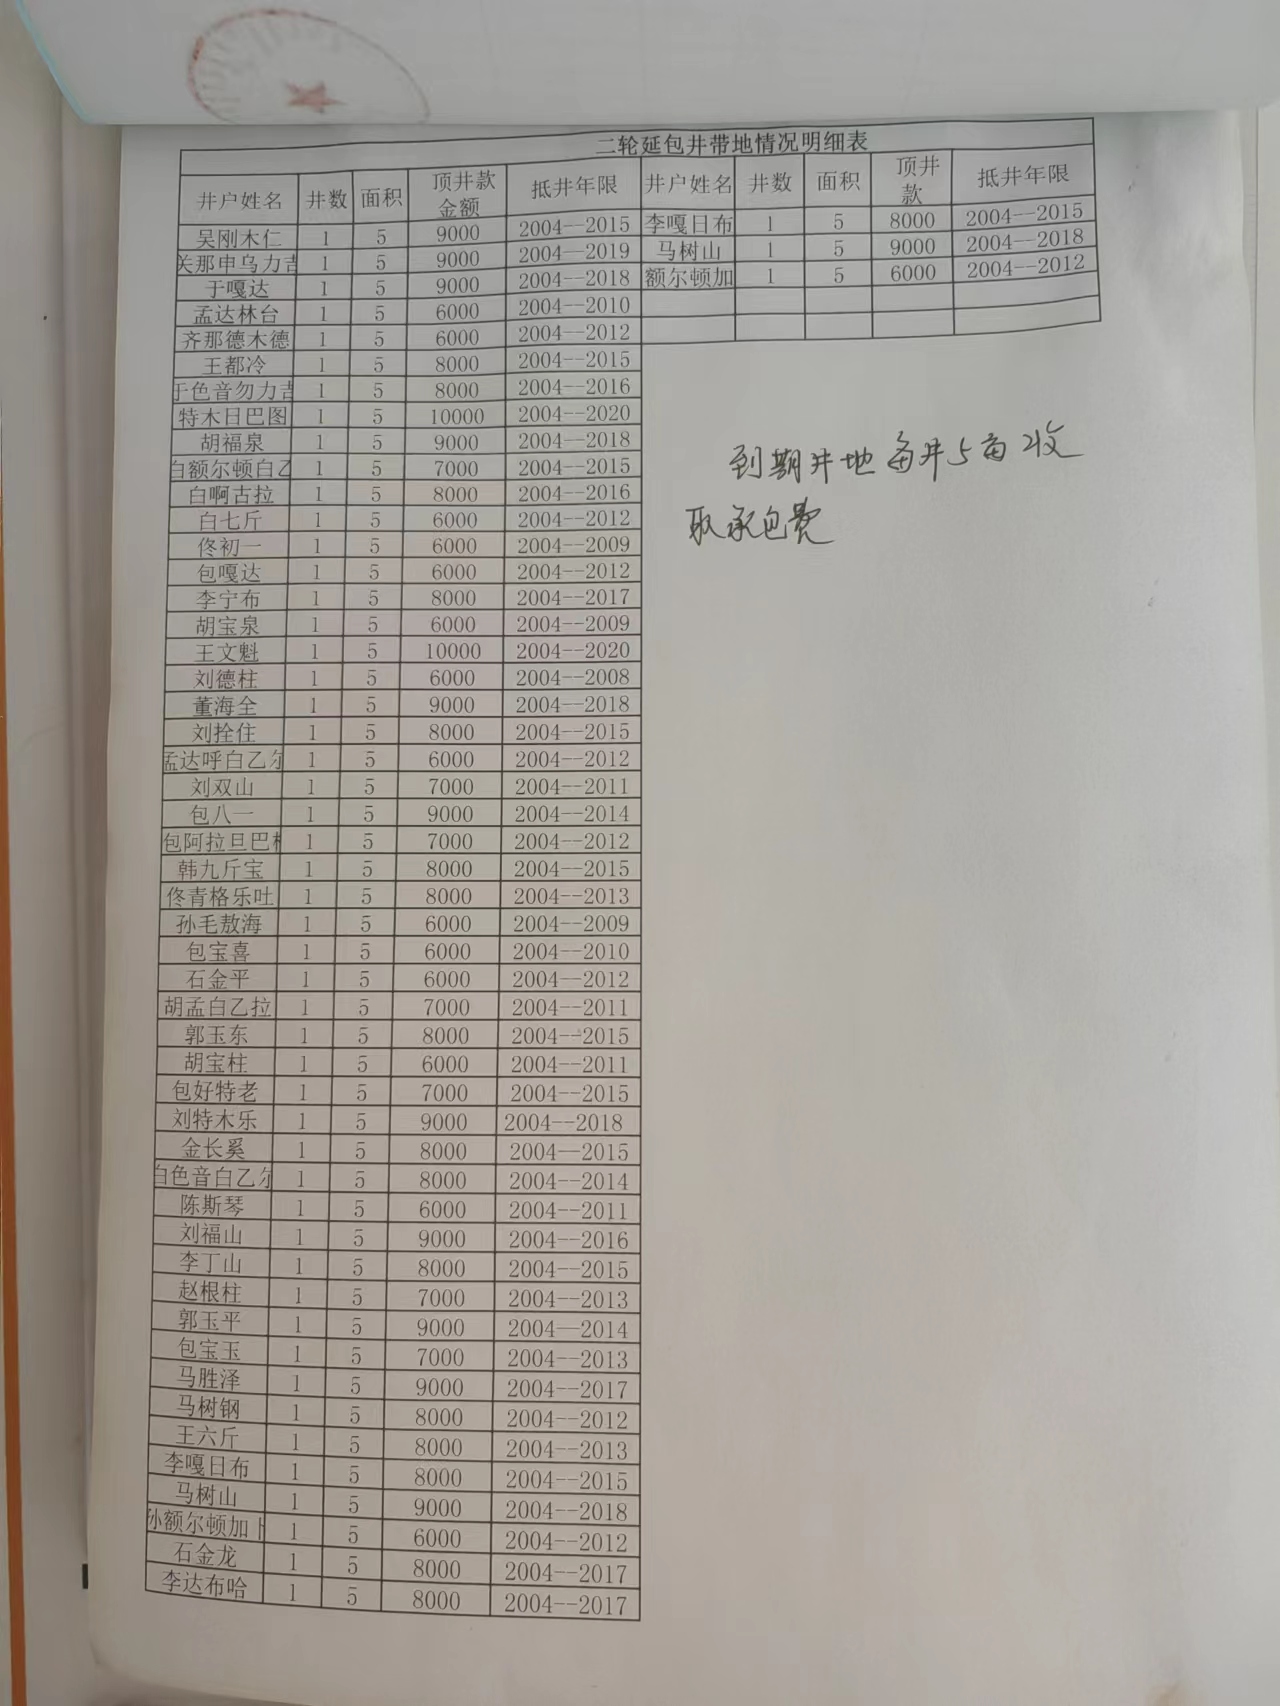 二轮延包井带地情况明细表
井户姓名 井数 面积 顶井款金额 抵井年限 井户姓名 井数 面积 顶井款 抵井年限
吴刚木仁 1 5 9000 2004--2015 李嘎日布 1 5 8000 2004--2015
关那申乌力吉 1 5 9000 2004--2019 马树山 1 5 9000 2004--2018
于嘎达 1 5 9000 2004--2018 额尔顿加 1 5 6000 2004--2012
孟达林台 1 5 6000 2004--2010
齐那德木德 1 5 6000 2004--2012
王都冷 1 5 8000 2004--2015
于色音勿力吉 1 5 8000 2004--2016
特木日巴图 1 5 10000 2004--2020
胡福泉 1 5 9000 2004--2018
白额尔顿白乙 1 5 7000 2004--2015
白啊古拉 1 5 8000 2004--2016
白七斤 1 5 6000 2004--2012
佟初一 1 5 6000 2004--2009
包嘎达 1 5 6000 2004--2012
李宁布 1 5 8000 2004--2017
胡宝泉 1 5 6000 2004--2009
王文魁 1 5 10000 2004--2020
刘德柱 1 5 6000 2004--2008
董海全 1 5 9000 2004--2018
刘拴住 1 5 8000 2004--2015
孟达呼白乙尔 1 5 6000 2004--2012
刘双山 1 5 7000 2004--2011
包八一 1 5 9000 2004--2014
包阿拉旦巴 1 5 7000 2004--2012
韩九斤宝 1 5 8000 2004--2015
佟青格乐吐 1 5 8000 2004--2013
孙毛敖海 1 5 6000 2004--2009
包宝喜 1 5 6000 2004--2010
石金平 1 5 6000 2004--2012
胡孟白乙拉 1 5 7000 2004--2011
郭玉东 1 5 8000 2004--2015
胡宝柱 1 5 6000 2004--2011
包好特老 1 5 7000 2004--2015
刘特木乐 1 5 9000 2004--2018
金长奚 1 5 8000 2004--2015
白色音白乙尔 1 5 8000 2004--2014
陈斯琴 1 5 6000 2004--2011
刘福山 1 5 9000 2004--2016
李丁山 1 5 8000 2004--2015
赵根柱 1 5 7000 2004--2013
郭玉平 1 5 9000 2004--2014
包宝玉 1 5 7000 2004--2013
马胜泽 1 5 9000 2004--2017
马树钢 1 5 8000 2004--2012
王六斤 1 5 8000 2004--2013
李嘎日布 1 5 8000 2004--2015
马树山 1 5 9000 2004--2018
孙额尔顿加卜 1 5 6000 2004--2012
石金龙 1 5 8000 2004--2017
李达布哈 1 5 8000 2004--2017
到期井地每井5亩收
取承包费